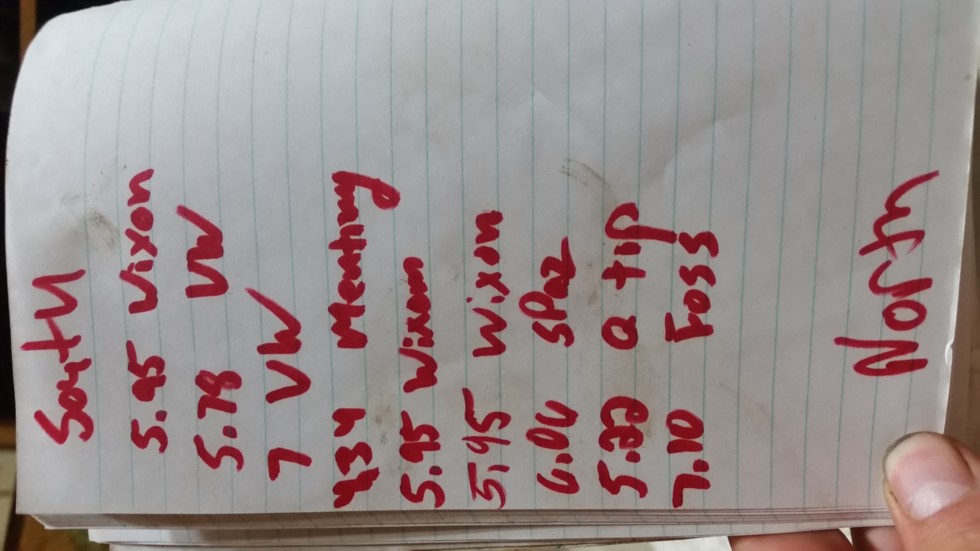 South
5.95 Vixon
5.78 VW
7 VW
4,34 Meating
5.95 Wixom
5.95 Wixon
6.00 Spaz
5.22 Q tip
7.10 Foss
North